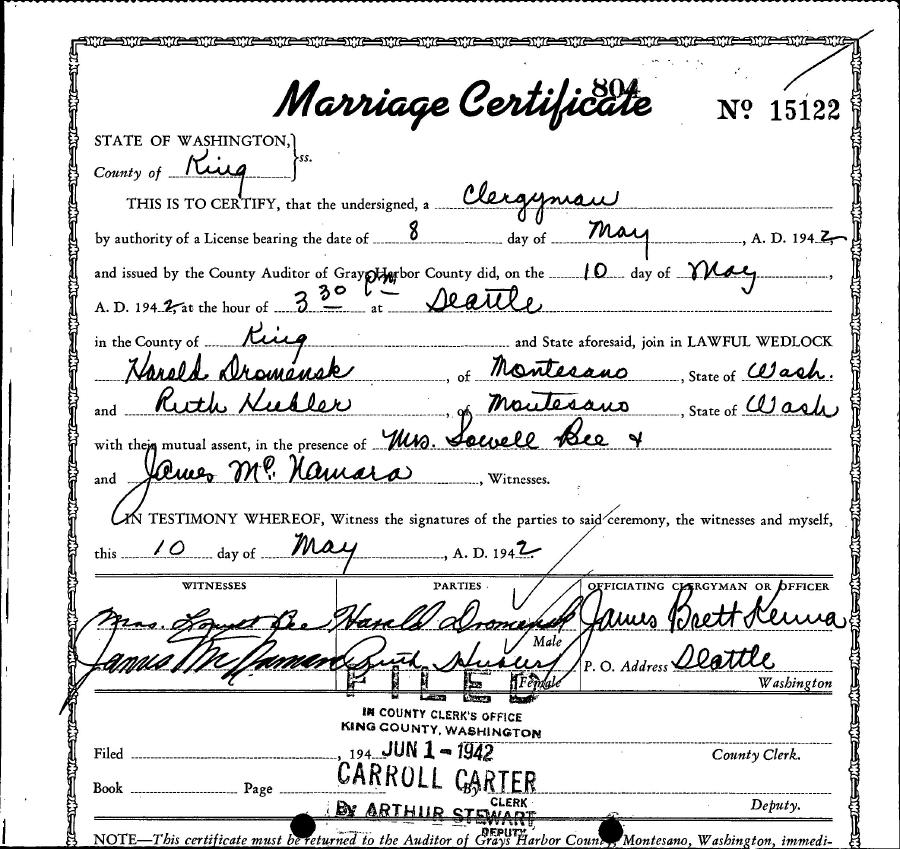 804
Marriage Certificate
No 15122
STATE OF WASHINGTON,
County of King } ss.
THIS IS TO CERTIFY, that the undersigned, a Clergyman
by authority of a License bearing the date of 8 day of May, A. D. 1942
and issued by the County Auditor of Grays Harbor County did, on the 10 day of May,
A. D. 1942, at the hour of 3 30 pm at Seattle
in the County of King and State aforesaid, join in LAWFUL WEDLOCK
Harold Dromensk, of Montesano, State of Wash.
and Ruth Hubler, of Montesano, State of Wash
with their mutual assent, in the presence of Mrs. Lowell Bee &
and James McNamara, Witnesses.
IN TESTIMONY WHEREOF, Witness the signatures of the parties to said ceremony, the witnesses and myself,
this 10 day of May, A. D. 1942
WITNESSES PARTIES OFFICIATING CLERGYMAN OR OFFICER
Mrs. Lowell Bee Harold Dromensk James Brett Kenna
Male
James McNamara Ruth P. O. Address Seattle
Female Washington
FILED
IN COUNTY CLERK'S OFFICE
KING COUNTY, WASHINGTON
Filed , 194 JUN 1 - 1942 County Clerk.
CARROLL CARTER
Book Page By CLERK
Deputy.
BY ARTHUR STEWART
DEPUTY
NOTE—This certificate must be returned to the Auditor of Grays Harbor County, Montesano, Washington, immedi-